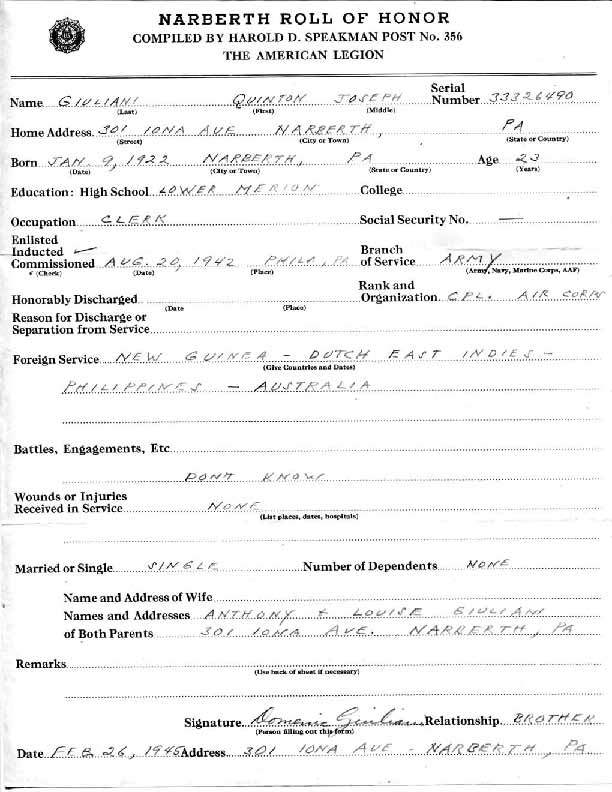 NARBERTH ROLL OF HONOR
COMPILED BY HAROLD D. SPEAKMAN POST No. 356
THE AMERICAN LEGION
Name GIULIANI QUINTON JOSEPH Serial Number 33326490
(Last) (First) (Middle)
Home Address 301 IONA AVE NARBERTH, PA
(Street) (City or Town) (State or Country)
Born JAN. 9, 1922 NARBERTH, PA Age 23
(Date) (City or Town) (State or Country) (Years)
Education: High School LOWER MERION College
Occupation CLERK Social Security No. —
Enlisted
Inducted ✓
Commissioned AUG. 20, 1942 PHILA, PA Branch of Service ARMY
(Check) (Date) (Place) (Army, Navy, Marine Corps, AAF)
Honorably Discharged Rank and Organization CPL. AIR CORPS
(Date (Place)
Reason for Discharge or
Separation from Service
Foreign Service NEW GUINEA - DUTCH EAST INDIES -
(Give Countries and Dates)
PHILIPPINES - AUSTRALIA
Battles, Engagements, Etc
DONT KNOW
Wounds or Injuries
Received in Service NONE
(List places, dates, hospitals)
Married or Single SINGLE Number of Dependents NONE
Name and Address of Wife
Names and Addresses ANTHONY + LOUISE GIULIANI
of Both Parents 301 IONA AVE. NARBERTH, PA
Remarks
(Use back of sheet if necessary)
Signature Domenic Giuliani Relationship BROTHER
(Person filling out this form)
Date FEB 26, 1945 Address 301 IONA AVE - NARBERTH, PA